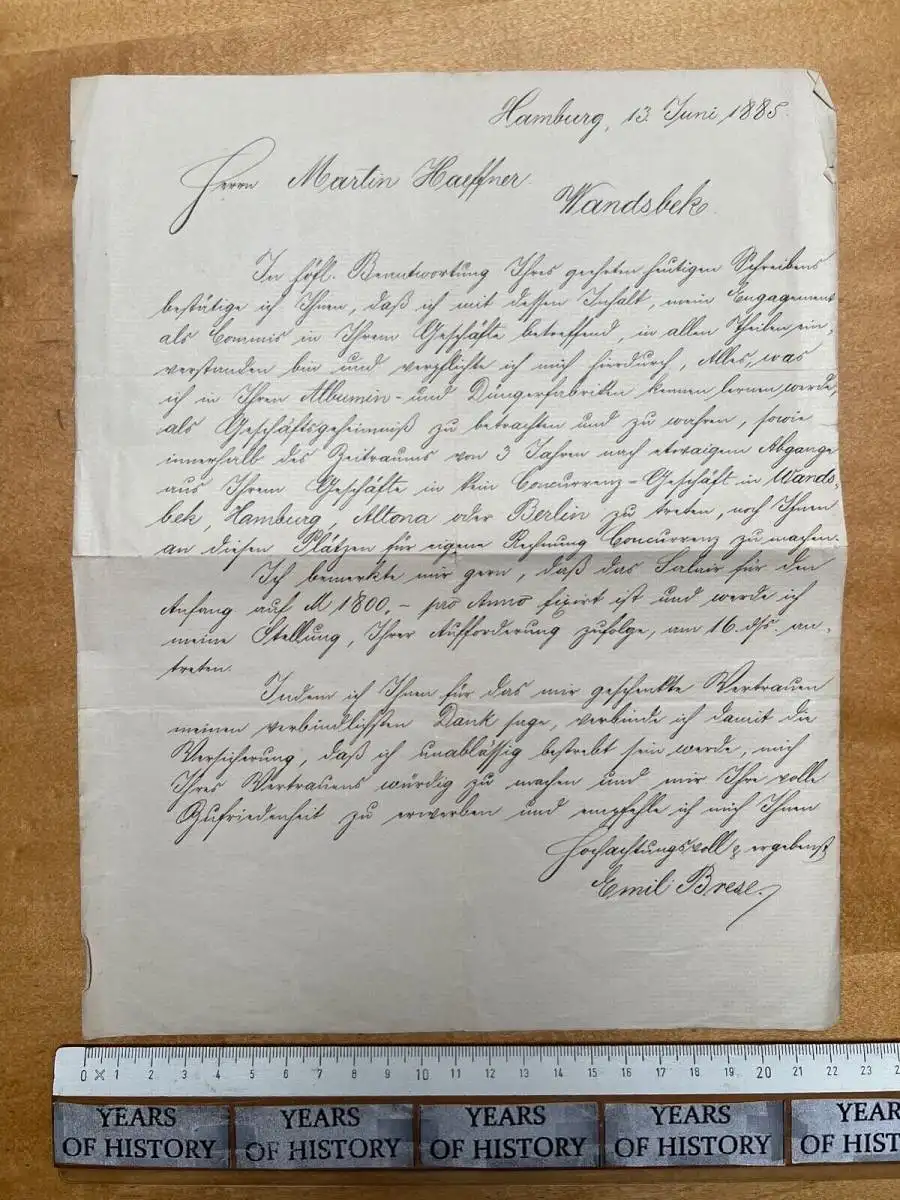 Hamburg, 13. Juni 1885.
Herrn Martin Haeffner.
Wandsbek.
In höfl. Beantwortung Ihres geehrten heutigen Schreibens
bestätige ich Ihnen, daß ich mit dessen Inhalt, mein Engagement
als Commis in Ihrem Geschäfte betreffend, in allen Theilen ein-
verstanden bin und verpflichte ich mich hierdurch, Alles, was
ich in Ihren Albumin- und Düngerfabriken kennen lernen werde,
als Geschäftsgeheimniß zu betrachten und zu wahren, sowie
innerhalb des Zeitraums von 3 Jahren nach etwaigem Abgange
aus Ihrem Geschäfte in kein Concurrenz-Geschäft in Wands-
bek, Hamburg, Altona oder Berlin zu treten, noch Ihnen
an diesen Plätzen für eigene Rechnung Concurrenz zu machen.
Ich bemerkte mir gern, daß das Salair für den
Anfang auf M 1800,- pro Anno fixirt ist und werde ich
meine Stellung, Ihrer Aufforderung zufolge, am 16. dfs. an-
treten.
Indem ich Ihnen für das mir geschenkte Vertrauen
meinen verbindlichsten Dank sage, verbinde ich damit die
Versicherung, daß ich unablässig bestrebt sein werde, mich
Ihres Vertrauens würdig zu machen und mir Ihre volle
Zufriedenheit zu erwerben und empfehle ich mich Ihnen
Hochachtungsvoll & ergebenst
Emil Brese.
0 1 2 3 4 5 6 7 8 9 10 11 12 13 14 15 16 17 18 19 20 21 22 23
YEARS OF HISTORY YEARS OF HISTORY YEARS OF HISTORY YEARS OF HISTORY YEAR OF HIST